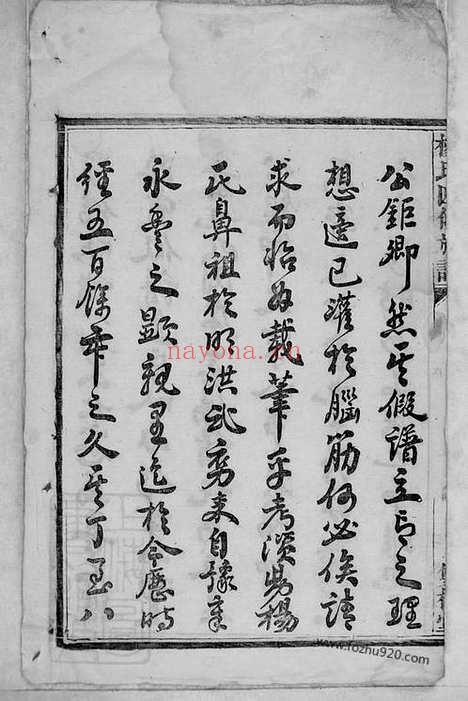 公鉅卿然其假譜立言之理
想適已灌於腦筋何必俟請
求而始為載筆乎考溪楊
氏鼻祖於明洪武旁來自豫章
永豐之顯親里迄於今歷時
經五百餘年之久其丁至八
nayona.cn
www.fozhu920.com